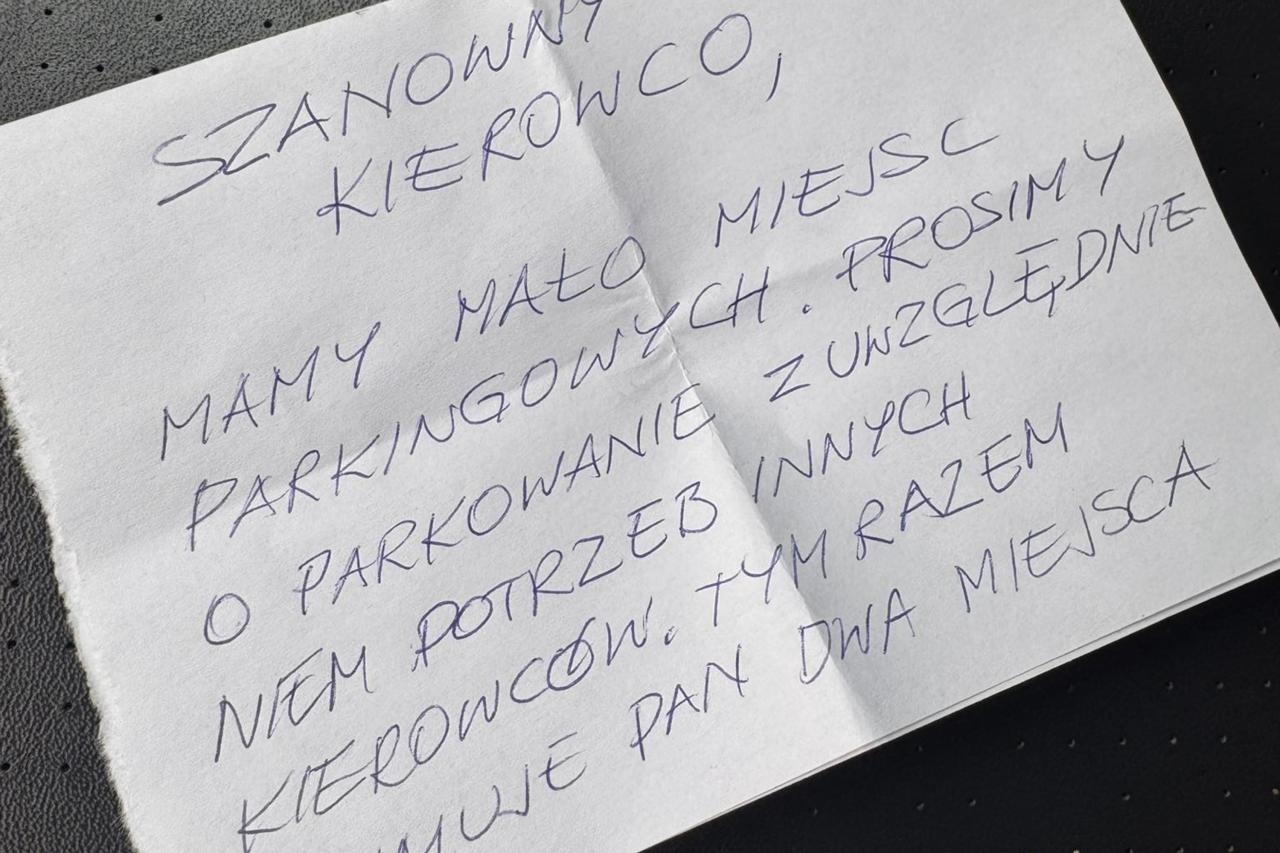 SZANOWNY
KIEROWCO,
MAMY MAŁO MIEJSC
PARKINGOWYCH. PROSIMY
O PARKOWANIE Z UWZGLĘDNIE
NIEM POTRZEB INNYCH
KIEROWCÓW. TYM RAZEM
MUJE PAN DWA MIEJSCA